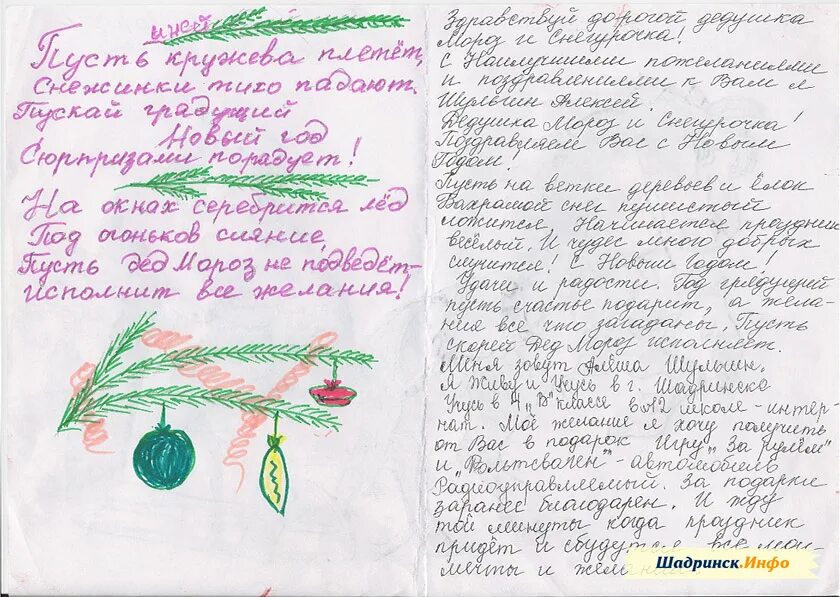 иней
Пусть кружева плетёт,
Снежинки тихо падают.
Пускай грядущий
Новый год
Сюрпризами порадует!
На окнах серебрится лёд
Под огоньков сияние,
Пусть дед Мороз не подведёт-
исполнит все желания!
Здравствуй дорогой дедушка
Мороз и Снегурочка!
С Наилучшими пожеланиями
и поздравлениями к Вам я
Шульгин Алексей.
Дедушка Мороз и Снегурочка!
Поздравляем Вас с Новым
Годом!
Пусть на ветки деревьев и ёлок
Бахрамой снег пушистый
ложится, Начинается праздник
весёлый. И чудес много добрых
случится! С Новым Годом!
Удачи и радости. Год грядущий
пусть счастье подарит, а жела-
ния все что загаданы. Пусть
скорей Дед Мороз исполняет.
Меня зовут Алёша Шульгин.
Я живу и Учусь в г. Шадринске
Учусь в 4 „В" классе в №12 школе-интер-
нат. Моё желание я хочу получить
от Вас в подарок Игру „За рулём"
и „Вольтсваген" - автомобиль
Радиоуправляемый. За подарки
заранее благодарен. И жду
той минуты когда праздник
придёт и сбудутся все мои
мечты и
Шадринск.Инфо